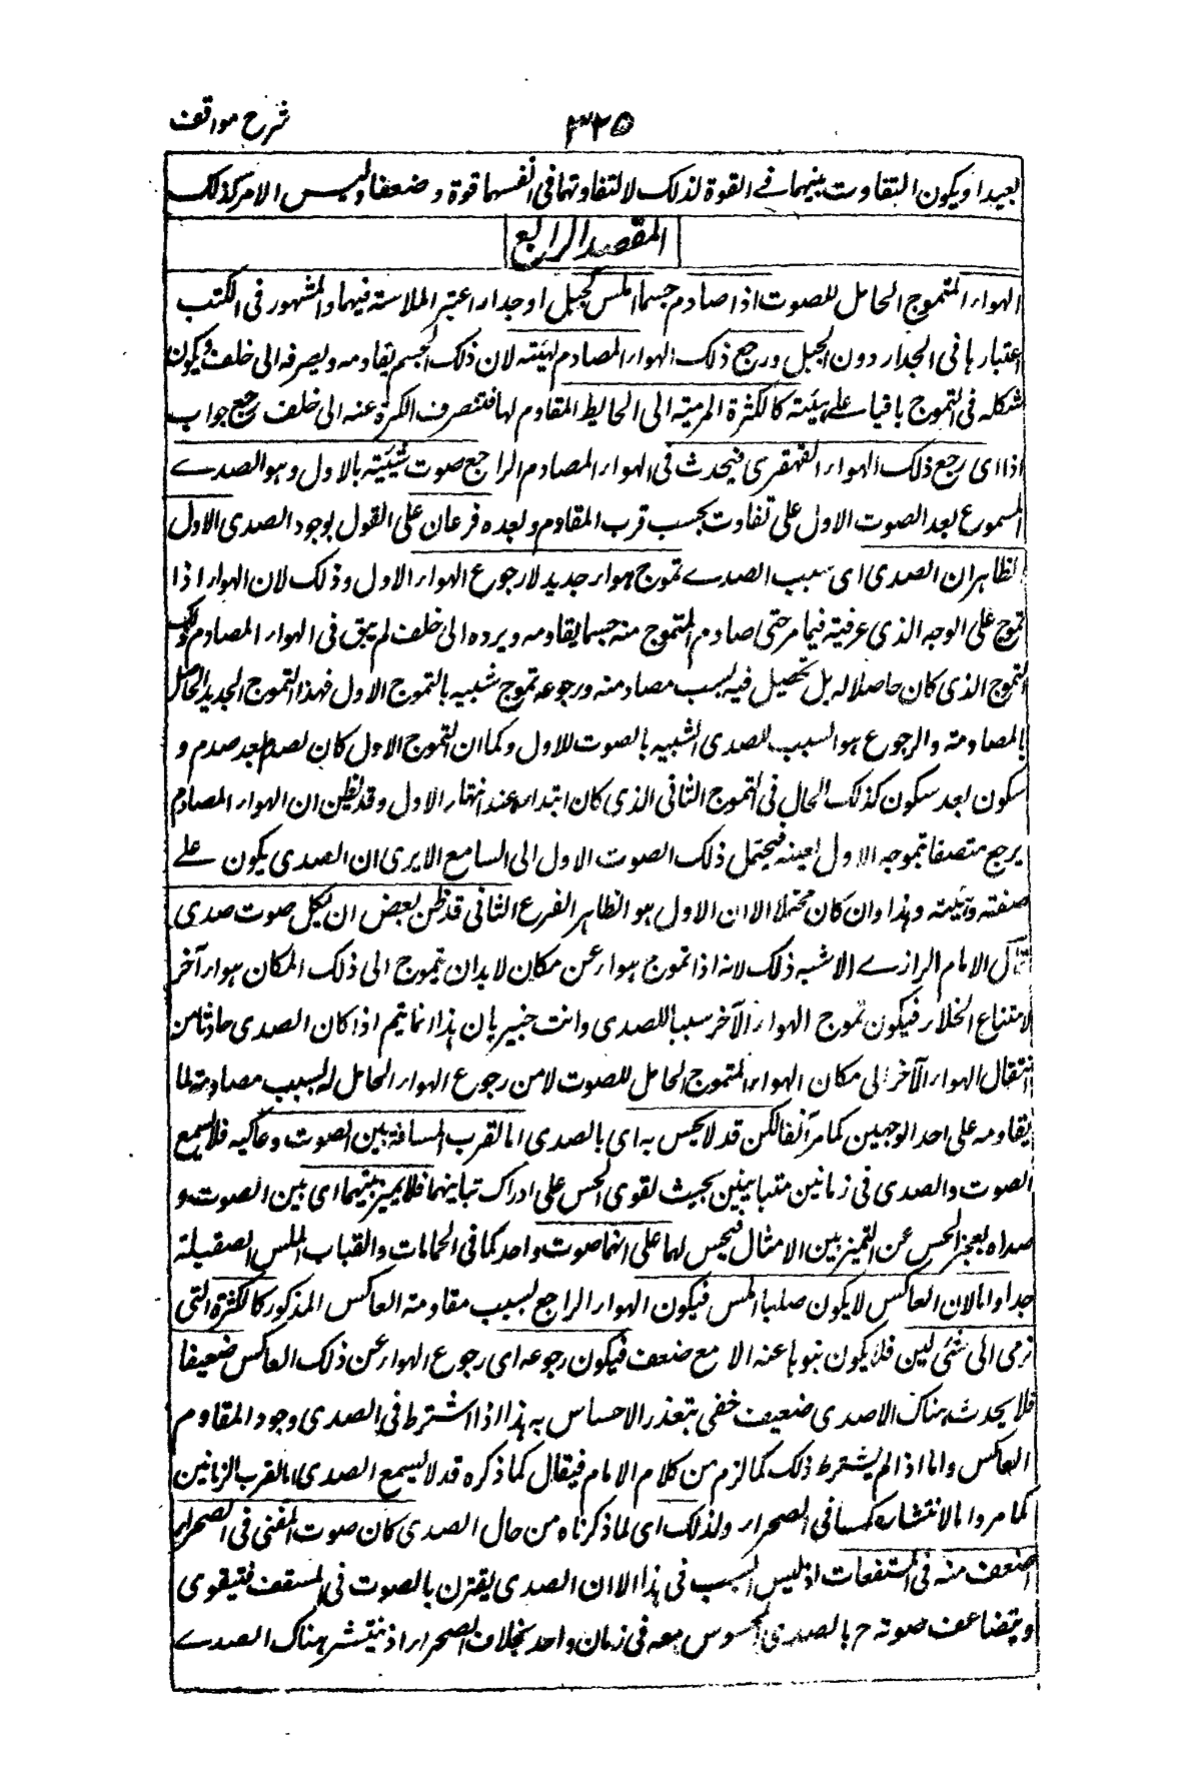 شرح مواقف
٣٢٥
بعيدا ويكون التفاوت بينهما فى القوة لذلك لا لتفاوتهما فى انفسهما قوة وضعفا وليس الامر كذلك
المقصد الرابع
الهواء المتموج الحامل للصوت اذا صادم جسما املس كجبل او جدار اعتبر الملاسة فيهما والمشهور فى الكتب
اعتبارها فى الجدار دون الجبل ورجع ذلك الهواء المصادم لهيئته لان ذلك الجسم يقاومه ويصرفه الى خلف ويكون
شكله فى التموج باقيا على هيئته كالكرة المرمية الى الحايط المقاوم لها فتنصرف الكرة عنه الى خلف رجع جواب
اذا اى رجع ذلك الهواء القهقرى فيحدث فى الهواء المصادم الراجع صوت شبيه بالاول وهو الصدى
المسموع بعد الصوت الاول على تفاوت بحسب قرب المقاوم وبعده فرعان على القول بوجود الصدى الاول
الظاهر ان الصدى اى سبب الصدى تموج هواء جديد لا رجوع الهواء الاول وذلك لان الهواء اذا
تموج على الوجه الذى عرفته فيما مر حتى صادم المتموج منه جسما يقاومه ويرده الى خلف لم يبق فى الهواء المصادم ذلك
التموج الذى كان حاصلا له بل تحصل فيه بسبب مصادمته ورجوعه تموج شبيه بالتموج الاول فهذا التموج الجديد الحاصل
بالمصادمة والرجوع هو السبب للصدى الشبيه بالصوت للاول وكما ان التموج الاول كان بصدم بعد صدم و
سكون بعد سكون كذلك الحال فى التموج الثانى الذى كان ابتداءه عند انتهاء الاول وقد يظن ان الهواء المصادم
يرجع متصفا بتموجه الاول بعينه فيحتمل ذلك الصوت الاول الى السامع الا يرى ان الصدى يكون على
صفته وهيئته وهذا وان كان محتملا الا ان الاول هو الظاهر الفرع الثانى قد ظن بعض ان لكل صوت صدى
قال الامام الرازى الاشبه ذلك لانه اذا تموج هواء عن مكان لا بد ان يتموج الى ذلك المكان هواء آخر
لامتناع الخلاء فيكون تموج الهواء الآخر سببا للصدى وانت خبير بان هذا انما يتم اذا كان الصدى حادثا من
انتقال الهواء الآخر الى مكان الهواء المتموج الحامل للصوت لا من رجوع الهواء الحامل له بسبب مصادمته لما
يقاومه على احد الوجهين كما مر آنفا لكن قد لا يحس به اى بالصدى اما لقرب المسافة بين الصوت وعاكسه فلا يسمع
الصوت والصدى فى زمانين متباينين بحيث لقوى الحس على ادراك تباينهما فلا يميز بينهما اى بين الصوت و
صداه بعجز الحس عن التميز بين الامثال فيحس لها على انهما صوت واحد كما فى الحمامات والقباب الملس الصقيلة
جدا واما لان العاكس لا يكون صلبا املس فيكون الهواء الراجع بسبب مقاومة العاكس المذكور كالكرة التى
ترمى الى شئ لين فلا يكون نبوها عنه الا مع ضعف فيكون رجوعه اى رجوع الهواء عن ذلك العاكس ضعيفا
فلا يحدث هناك الا صدى ضعيف خفى يتعذر الاحساس به هذا اذا اشترط فى الصدى وجود المقاوم
العاكس واما اذا لم يشترط ذلك كما لزم من كلام الامام فيقال كما ذكره قد لا يسمع الصدى اما لقرب الزمانين
كما مر واما لانتشاره كما فى الصحراء ولذلك اى لما ذكرناه من حال الصدى كان صوت المغنى فى الصحراء
اضعف منه فى المسقفات اذ ليس السبب فى هذا الا ان الصدى يقترن بالصوت فى المسقف فيتقوى
ويتضاعف صوته ح بالصدى المحسوس معه فى زمان واحد بخلاف الصحراء اذ ينتشر هناك الصدى